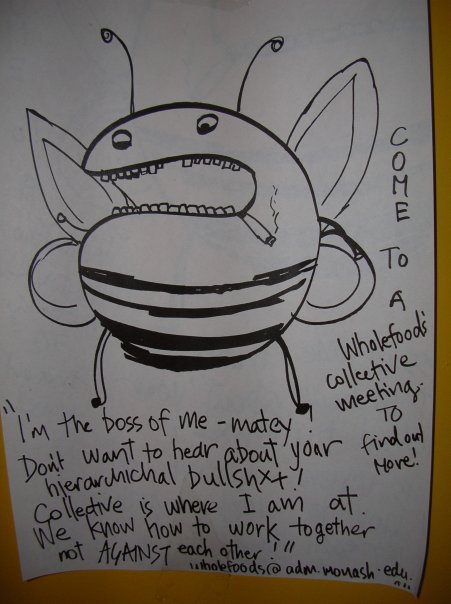 COME
TO
A
Wholefoods'
collective
meeting.
TO
find out
more!
"I'm the boss of me - matey!
Don't want to hear about your
hierarchichal bullshxt!
Collective is where I am at.
We know how to work together
not AGAINST each other!"
wholefoods@adm.monash.edu.